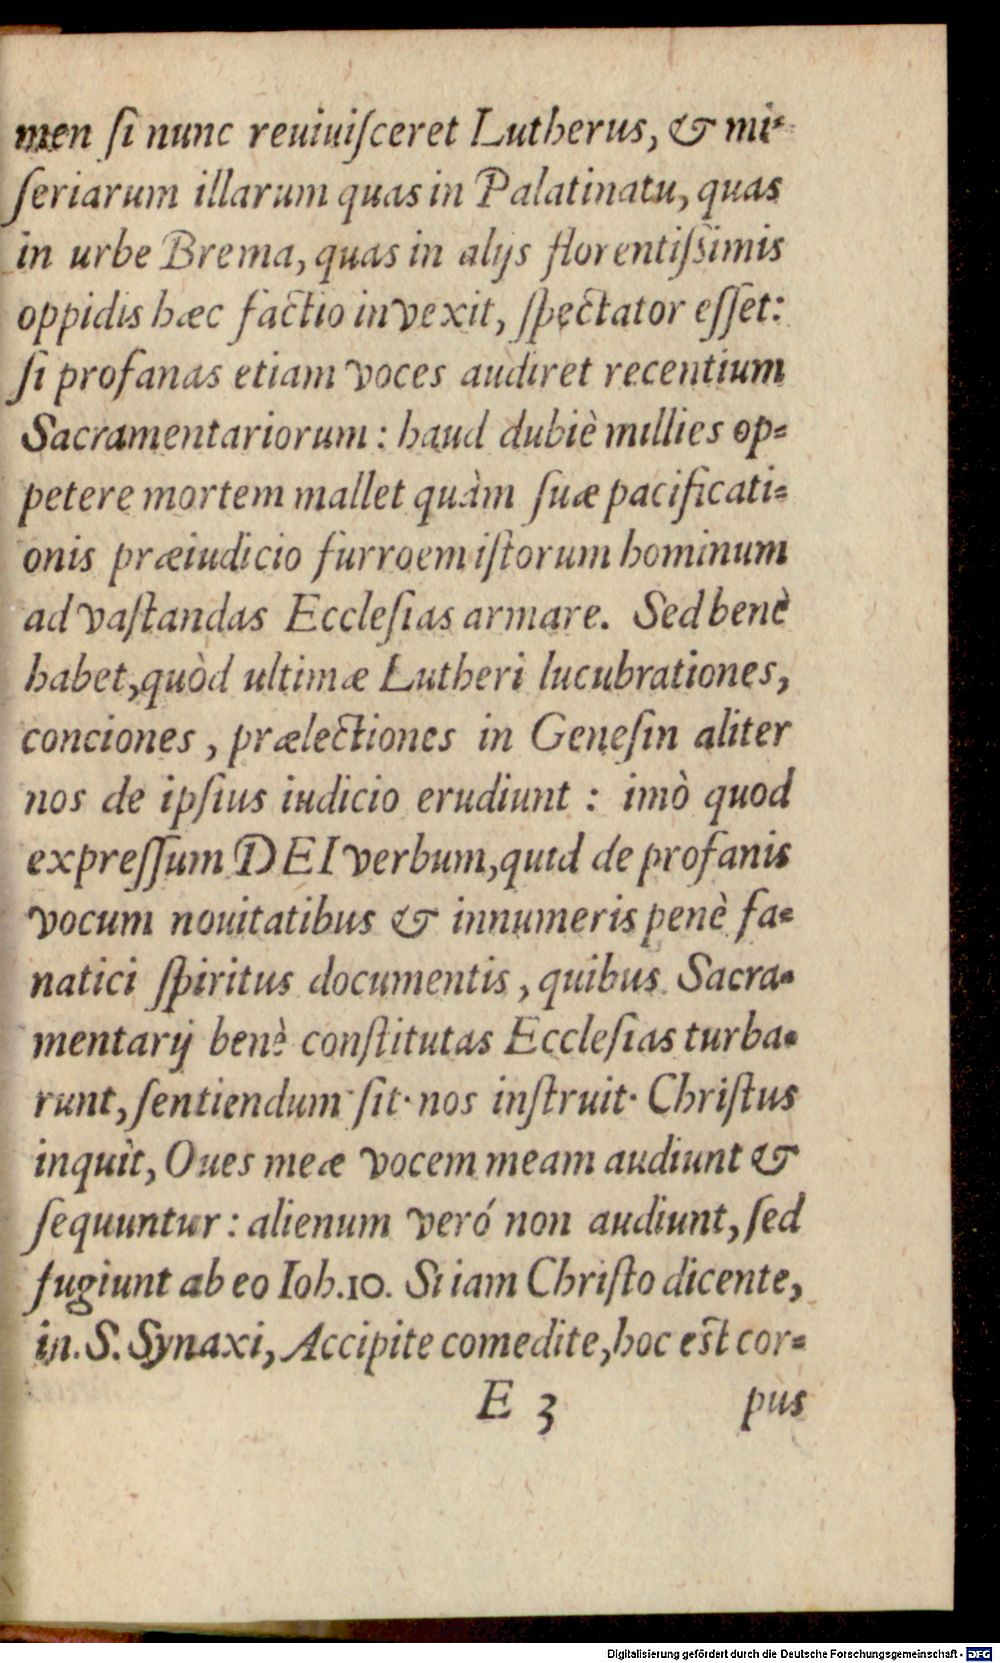 men ſi nunc reuiuiſceret Lutherus, & mi-
ſeriarum illarum quas in Palatinatu, quas
in urbe Brema, quas in alijs florentiſsimis
oppidis hæc factio invexit, ſpectator eſſet:
ſi profanas etiam voces audiret recentium
Sacramentariorum: haud dubiè millies op=
petere mortem mallet quàm ſuæ pacificati=
onis præiudicio furroem iſtorum hominum
ad vaſtandas Eccleſias armare. Sed benè
habet, quòd ultimæ Lutheri lucubrationes,
conciones, prælectiones in Geneſin aliter
nos de ipſius iudicio erudiunt: imò quod
expreſſum DEI verbum, quid dé profanis
vocum nouitatibus & innumeris penè fa=
natici ſpiritus documentis, quibus Sacra-
mentarij benè conſtitutas Eccleſias turba-
runt, ſentiendum ſit· nos inſtruit· Chriſtus
inquit, Oues meæ vocem meam audiunt &
ſequuntur: alienum veró non audiunt, ſed
fugiunt ab eo Ioh.10. Si iam Chriſto dicente,
in. S. Synaxi, Accipite comedite, hoc eſt cor=
E 3 pus
Digitalisierung gefördert durch die Deutsche Forschungsgemeinschaft - DFG